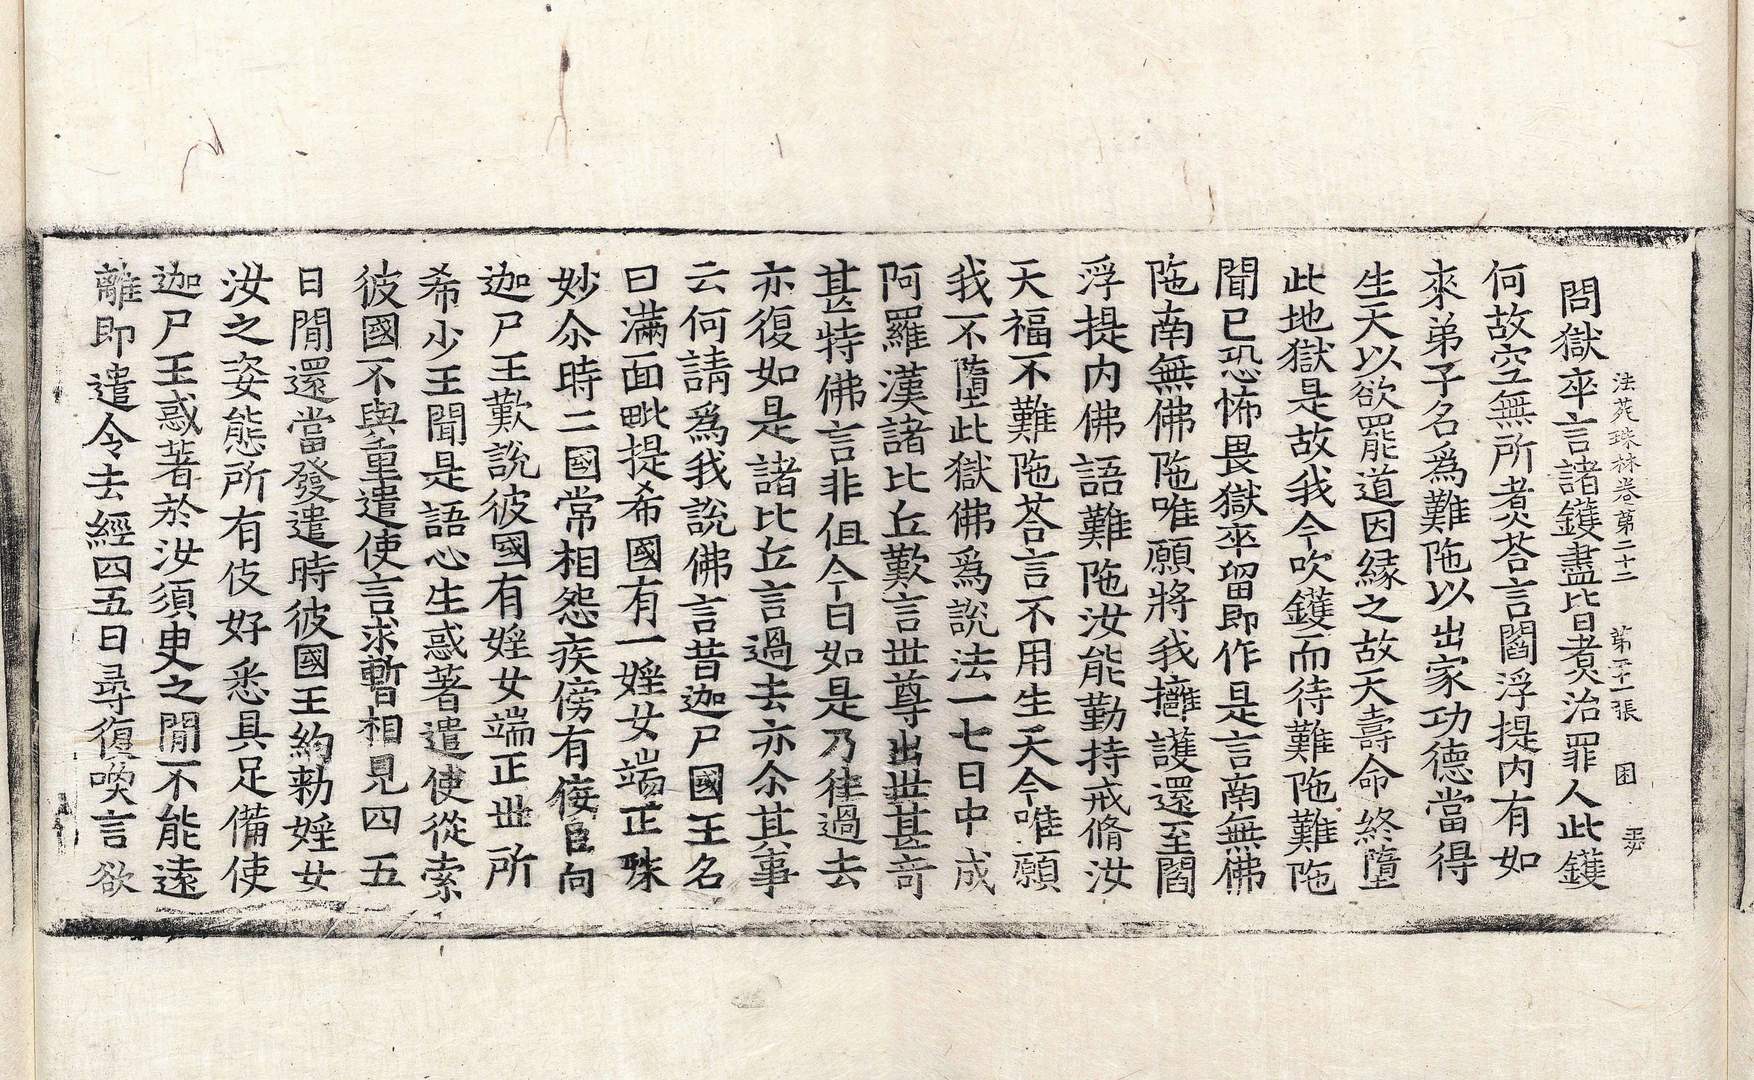 問獄卒言諸鑊盡皆煮治罪人此鑊
法苑珠林卷第二十二 第二十一張 困
何故空無所煮荅言閻浮提内有如
來弟子名爲難陁以出家功德當得
生天以欲罷道因緣之故天壽命終墮
此地獄是故我今吹鑊而待難陁難陁
聞已恐怖畏獄卒留即作是言南無佛
陁南無佛陁唯願將我擁護還至閻
浮提内佛語難陁汝能勤持戒脩汝
天福不難陁荅言不用生天今唯願
我不墮此獄佛爲說法一七日中成
阿羅漢諸比丘歎言世尊出世甚奇
甚特佛言非但今日如是乃往過去
亦復如是諸比丘言過去亦尒其事
云何請爲我說佛言昔迦尸國王名
曰滿面毗提希國有一婬女端正殊
妙尒時二國常相怨疾傍有佞臣向
迦尸王歎說彼國有婬女端正世所
希少王聞是語心生惑著遣使從索
彼國不與重遣使言求暫相見四五
日閒還當發遣時彼國王約勑婬女
汝之姿態所有伎好悉具足備使
迦尸王惑著於汝須臾之閒不能遠
離即遣令去經四五日尋復喚言欲